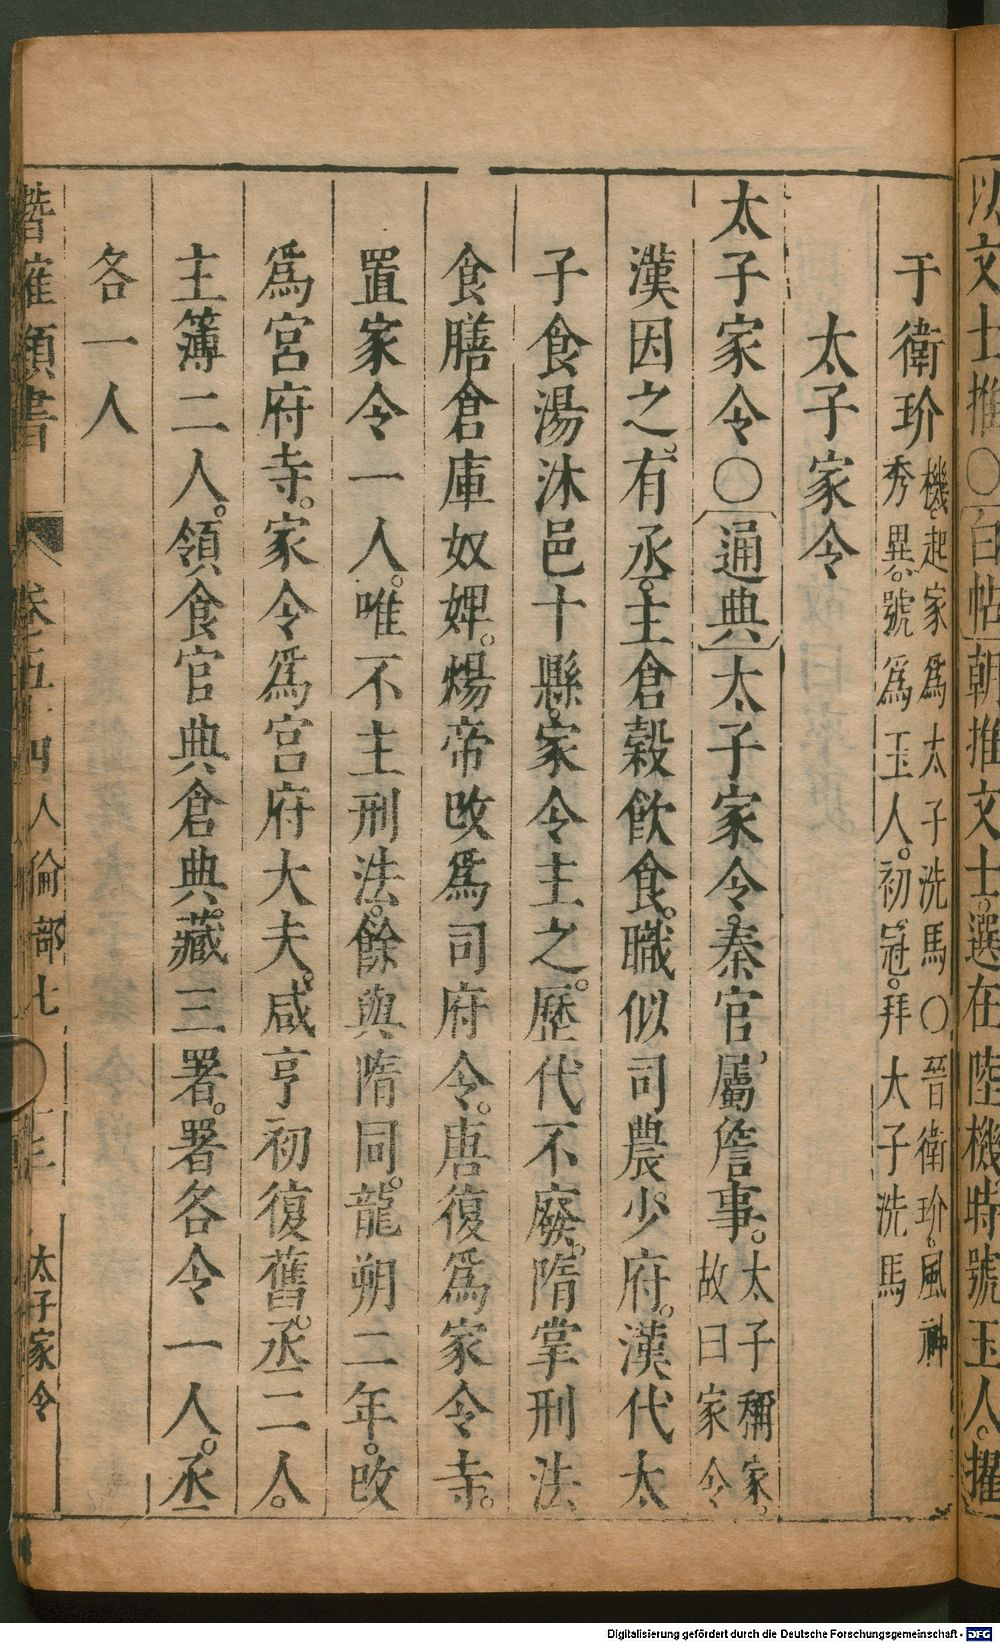 以文士推○白帖朝推文士。選在陸機時號玉人。擢
于衛玠機、起家爲太子洗馬○晉衛玠。風神
秀異。號爲玉人。初冠。拜太子洗馬
太子家令
太子家令○通典太子家令。秦官。屬詹事。太子稱家。
故曰家令
漢因之。有丞。主倉穀飲食。職似司農少府。漢代太
子食湯沐邑十縣。家令主之。歷代不廢。隋掌刑法
食膳倉庫奴婢。煬帝改爲司府令。唐復爲家令寺。
置家令一人。唯不主刑法。餘與隋同。龍朔二年。改
爲宮府寺。家令爲宮府大夫。咸亨初復舊。丞二人。
主簿二人。領食官典倉典藏三署。署各令一人。丞
各一人
潛確類書 卷五十四人倫部七 太子家令
Digitalisierung gefördert durch die Deutsche Forschungsgemeinschaft - DFG